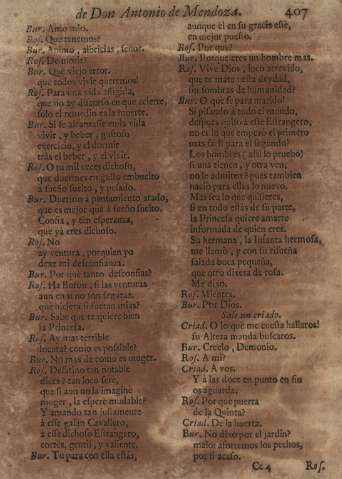 de Don Antonio de Mendoza. 407
Bur. Amo mio.
Ros. Què tenemos?
Bur. Animo, albricias, señor.
Ros. De modo?
Bur. Què viejo error.
que todos vivir queremos!
Ros. Para una vida afligida,
que no ay quatorio en que acierte,
solo el remedio es la muerte.
Bur. Si se alcançasse en la vida
vivir, y beber, gustoso
exercicio, y el dormir
tràs el beber, y el vivir.
Ros. O tu mil veces dichoso,
que duermes en gusto embuelto
à sueño suelto, y pesado.
Bur. Duermo à pensamiento atado,
que es mejor que à sueño suelto.
Confia, y ten esperança,
que ya eres dichoso.
Ros. No
ay ventura, por quien yo
dexe mi desconfiança.
Bur. Por què tanto desconfias?
Ros. Ha Buron, si las venturas
aun en si no son seguras,
què hiciera si fueran mias?
Bur. Sabe que te quiere bien
la Princesa.
Ros. Ay mas terrible
locura! como es possible?
Bur. No mas de como es muger.
Ros. Desatino tan notable
dices? tan loco fuere,
que si aun no la imagine
muger, la esperè mudable?
Y amando tan justamente
à esse galàn Cavallero,
à esse dichoso Estrangero,
cortès, gentil, y valiente.
Bur. Tu para con ella estàs,
aunque èl en su gracia estè,
en mejor puesto.
Ros. Por què?
Bur. Porque eres un hombre mas.
Ros. Vive Dios, loco atrevido,
que te mate: essa deydad,
sin sombras de humanidad?
Bur. O què se para marido!
Si pisando à todo el mundo,
despues quiso à esse Estrangero,
no es lo que emperò el primero
mas facil para el segundo?
Los hombres (ahi lo pruebo)
si una tienen, y otra ven,
no le admiten? pues tambien
naciò para ellas lo nuevo.
Mas sea lo que quisieres,
si en todo ellas de su parte,
la Princesa quiere amarte
informada de quien eres.
Su hermana, la Infanta hermosa,
me llamò, y con su risueña
salada boca pequeña,
que otro dixera de rosa.
Me dixo.
Ros. Mientes.
Bur. Por Dios.
Sale un criado.
Criad. O lo que me cuesta hallaros!
su Alteza manda buscaros.
Bur. Creelo, Demonio.
Ros. A mi?
Criad. A vos.
Y à las doce en punto en fin
os aguarda.
Ros. Por què puerta
de la Quinta?
Criad. De la huerta.
Bur. No dixo por el jardin?
malos aforremos los pechos,
por si acaso.
Cc 4 Ros.